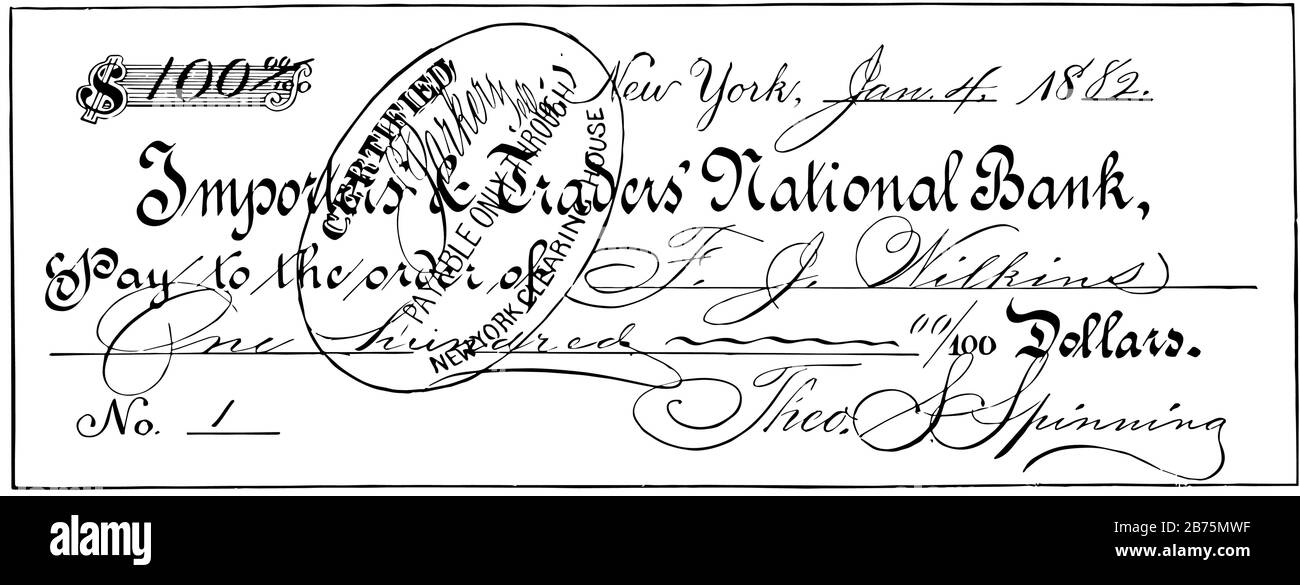 $ 100 00/100 New York, Jan. 4, 1882.
Importers' & Traders' National Bank,
Pay to the order of F. J. Wilkins
One hundred 00/100 Dollars.
No. 1 Theo. S. Spinning
CERTIFIED
PAYABLE ONLY THROUGH
NEW YORK CLEARING HOUSE
alamy
Image ID: 2B75MWF
www.alamy.com